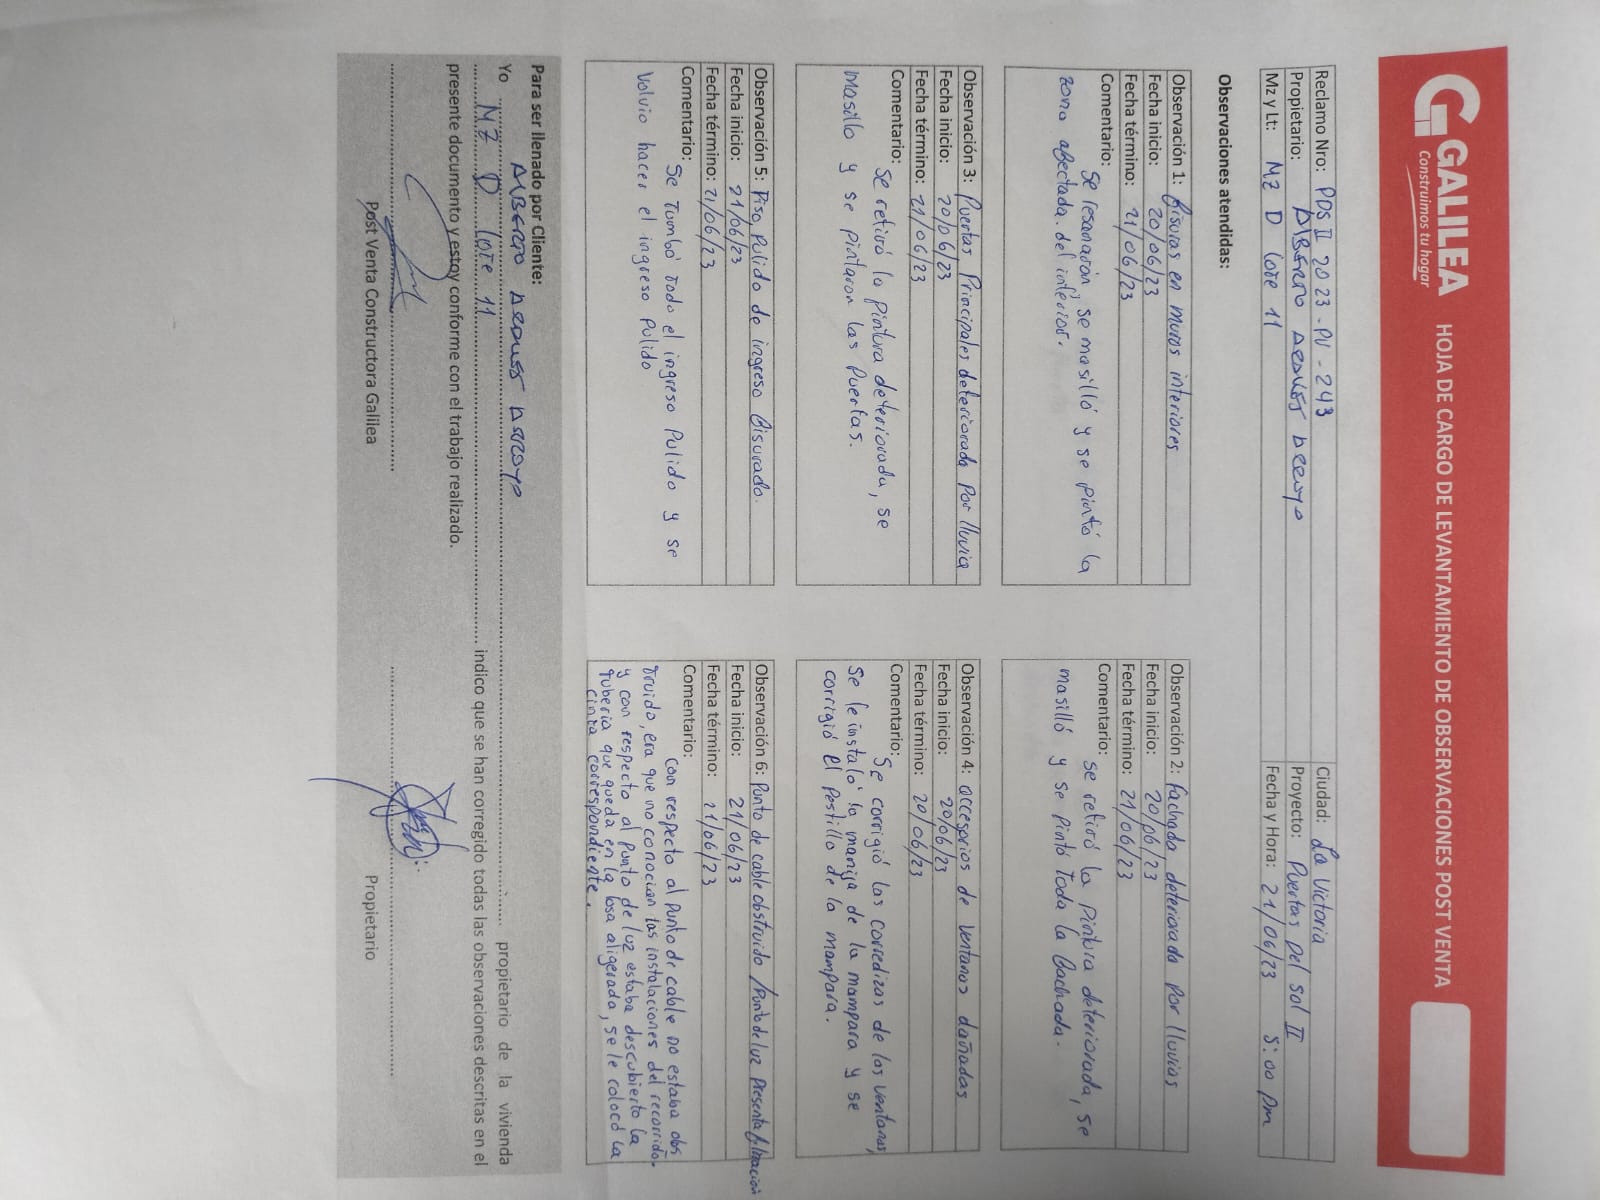 GALILEA
Construimos tu hogar
HOJA DE CARGO DE LEVANTAMIENTO DE OBSERVACIONES POST VENTA
Reclamo Nro: PDS II 2023 - PV - 243
Ciudad: La Victoria
Propietario: Alberto
Proyecto: Puertas Del Sol II
Mz y Lt: Mz D Lote 11
Fecha y Hora: 21/06/23 5:00 pm
Observaciones atendidas:
Observación 1: fisuras en muros interiores
Fecha inicio: 20/06/23
Fecha término: 21/06/23
Comentario: Se resanarón, se masilló y se pintó la
zona afectada del interior.
Observación 2: fachada deteriorada por lluvias
Fecha inicio: 20/06/23
Fecha término: 21/06/23
Comentario: se retiró la pintura deteriorada, se
masilló y se pintó toda la fachada.
Observación 3: Puertas Principales deteriorada por lluvia
Fecha inicio: 20/06/23
Fecha término: 21/06/23
Comentario: Se retiró la pintura deteriorada, se
masillo y se pintaron las puertas.
Observación 4: accesorios de ventanas dañadas
Fecha inicio: 20/06/23
Fecha término: 20/06/23
Comentario: Se corrigió las corredizas de las ventanas,
se le instaló la manija de la mampara y se
corrigió el Pestillo de la mampara.
Observación 5: Piso Pulido de ingreso fisurado.
Fecha inicio: 21/06/23
Fecha término: 21/06/23
Comentario: Se Tumbó Todo el ingreso Pulido y se
volvio hacer el ingreso Pulido
Observación 6: Punto de cable obstruido / Punto de luz presenta filtración
Fecha inicio: 21/06/23
Fecha término: 21/06/23
Comentario: Con respecto al punto de cable no estaba obs
truido, era que no conocian las instalaciones del recorrido.
y con respecto al punto de luz estaba descubierto la
tuberia que queda en la losa aligerada, se le colocó la
cinta correspondiente.
Para ser llenado por Cliente:
Yo Alberto propietario de la vivienda
Mz D Lote 11 indico que se han corregido todas las observaciones descritas en el
presente documento y estoy conforme con el trabajo realizado.
Post Venta Constructora Galilea
Propietario